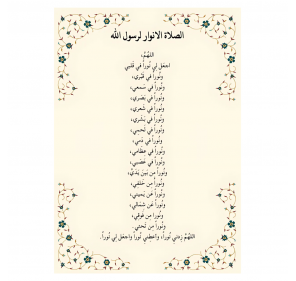 الصلاة الانوار لرسول الله
اللَّهُمَّ،
اجعَل لِي نُوراً فِي قَلبِي
وَنُوراً فِي قَبْرِي،
وَنُوراً فِي سَمعِي،
وَنُوراً فِي بَصَرِي،
وَنُوراً فِي شَعْرِي،
وَنُوراً فِي بَشَرِي،
وَنُوراً فِي لَحمِي،
وَنُوراً فِي دَمِي،
وَنُوراً فِي عِظَامِي،
وَنُوراً فِي عَصَبِي،
وَنُوراً مِن بَينِ يَدَيَّ،
وَنُوراً مِن خَلفِي،
وَنُوراً عَن يَمِينِي،
وَنُوراً عَن شِمَالِي،
وَنُوراً مِن فَوقِي،
وَنُوراً مِن تَحتِي.
اللَّهُمَّ زِدنِي نُوراً، وَاَعطِنِي نُوراً وَاجعَل لِي نُوراً.